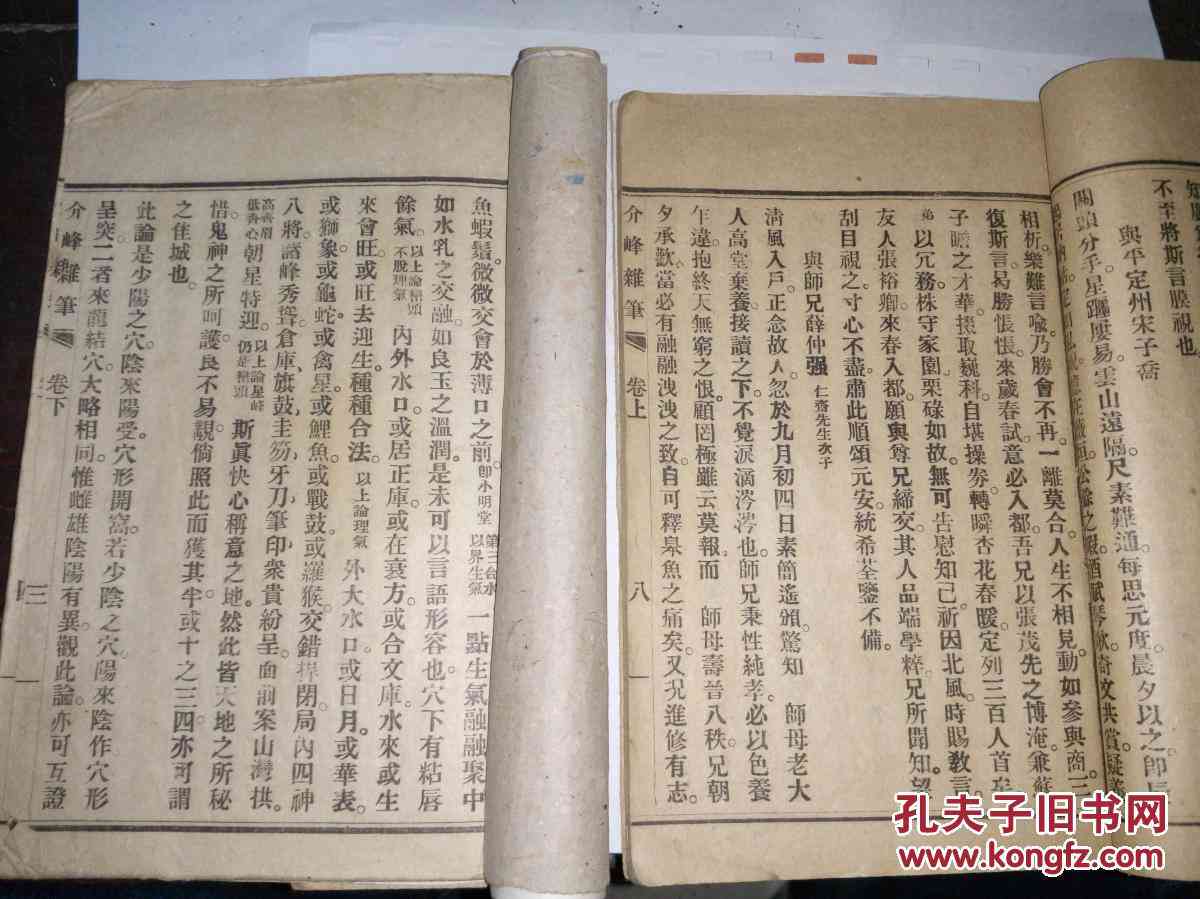 不至將斯言膜視也。
與平定州宋子喬
關頭分手星躔屢易雲山遠隔尺素難通每思元度晨夕以之即
相析樂難言喩乃勝會不再一離莫合人生不相見動如參與商三
復斯言曷勝悵悵來歲春試意必入都吾兄以張茂先之博淹兼蘇
子瞻之才華掇取巍科自堪操劵轉瞬杏花春暖定列三百人首
弟以冗務株守家園栗碌如故無可告慰知己祈因北風時賜敎言
友人張裕卿來春入都願與尊兄締交其人品端學粹兄所聞知望
刮目視之寸心不盡肅此順頌元安統希荃鑒不備。
與師兄薛仲强 仁齋先生次子
淸風入戶正念故人忽於九月初四日素簡遙頒驚知 師母老大
人高堂棄養接讀之下不覺淚滴涔涔也師兄秉性純孝必以色養
乍違抱終天無窮之恨顧罔極雖云莫報而 師母壽晉八秩兄朝
夕承歡當必有融融洩洩之致自可釋皐魚之痛矣又况進修有志
介峰雜筆 卷上 八
魚蝦鬚微微交會於薄口之前卽小明堂 第三合水以界生氣 一點生氣融融聚中
如水乳之交融如良玉之溫潤是未可以言語形容也穴下有粘唇
餘氣以上論巒頭不脫理氣 內外水口或居正庫或在衰方或合文庫水來或生
來會旺或旺去迎生種種合法以上論理氣 外大水口或日月或華表
或獅象或龜蛇或禽星或鯉魚或戰鼓或羅猴交錯捍閉局內四神
八將諸峰秀聳倉庫旗鼓圭笏牙刀筆印衆貴紛呈面前案山灣拱
高齊眉低齊心朝星特迎以上論星峰仍是巒頭 斯眞快心稱意之地然此皆天地之所秘
惜鬼神之所呵護良不易覯倘照此而獲其半或十之三四亦可謂
之佳城也。
此論是少陽之穴陰來陽受穴形開窩若少陰之穴陽來陰作穴形
呈突二者來龍結穴大略相同惟雌雄陰陽有異觀此論亦可互證
介峰雜筆 卷下 三
孔夫子旧书网
www.kongfz.com